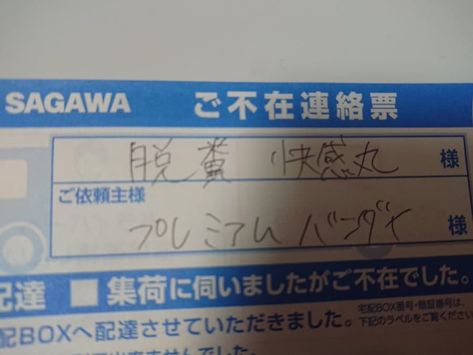 SAGAWA ご不在連絡票
脱糞 快感丸 様
ご依頼主様
プレミアム バンダイ
配達 ■ 集荷に伺いましたがご不在でした。
宅配BOX番号・暗証番号は、
配BOXへ配達させていただきました。 下記のラベルをご覧ください